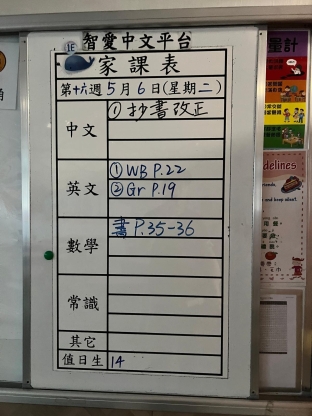 1E
智愛中文平台
家課表
第十六週 5月6日(星期二)
中文 ①抄書改正
英文 ①WB P.22
②Gr P.19
數學 書P.35-36
常識
其它
值日生 14
量計
delines